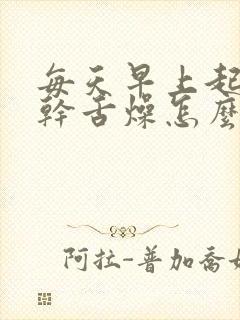 每天早上起
幹舌燥怎麼
阿拉-普加喬